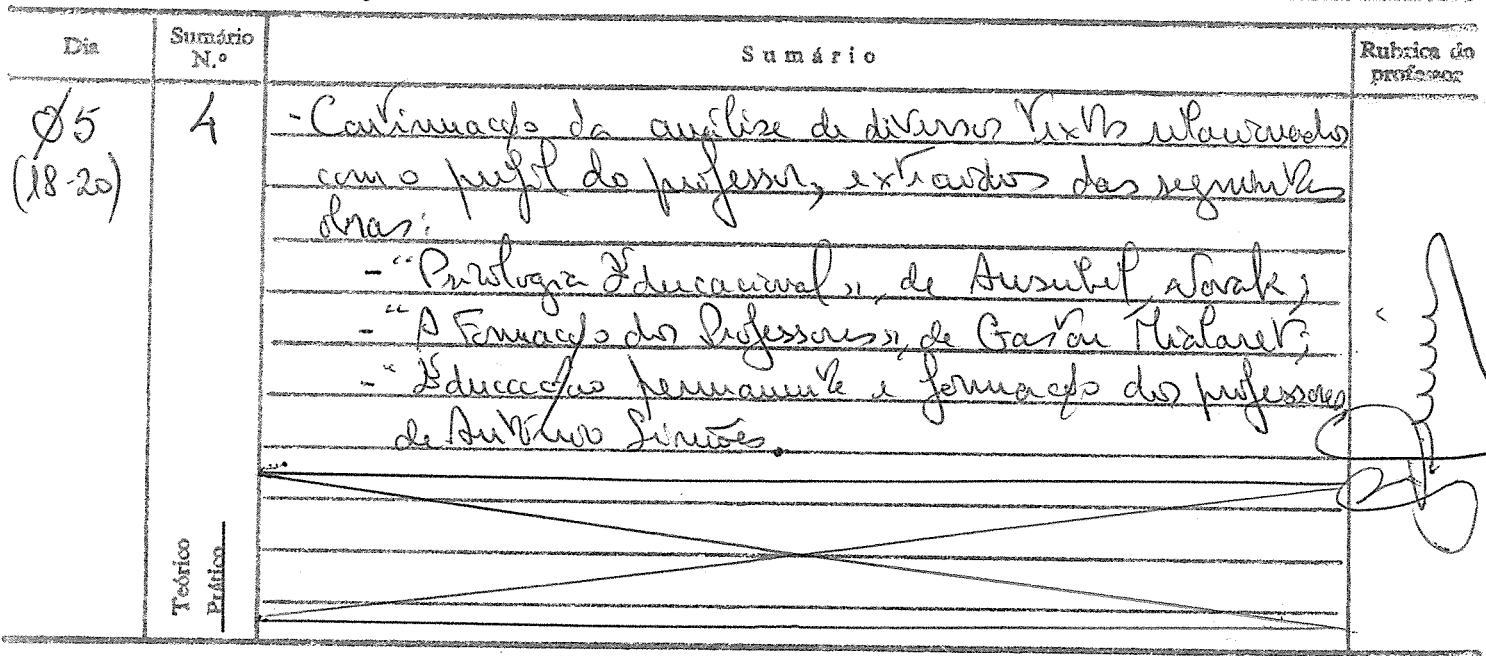 Dia
Sumário N.º
Sumário
Rubrica do professor
05
(18-20)
4
- Continuação da análise de diversos textos relacionados
com o perfil do professor, extraídos das seguintes
obras:
- "Psicologia Educacional", de Ausubel, Novak;
- "A Formação dos Professores", de Gaston Mialaret;
- "Educação permanente e formação dos professores
de António Simões.
Teórico
Prático